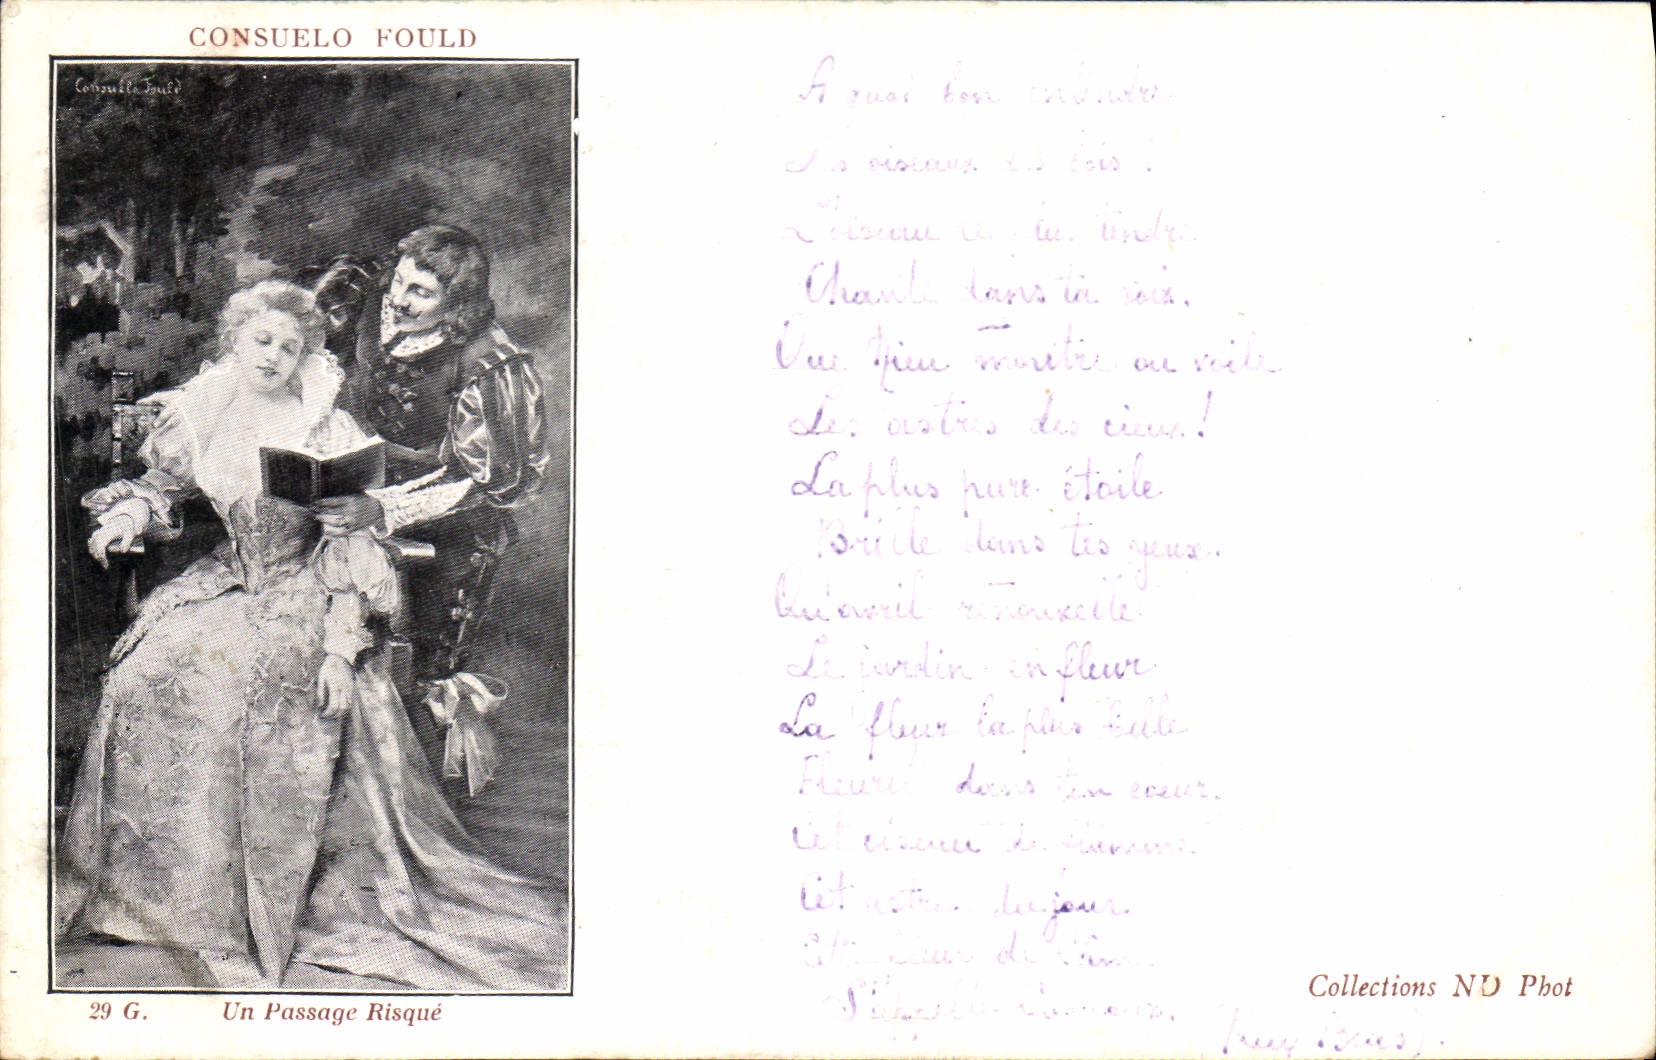 CONSUELO FOULD
Consuelo Fould
A quoi bon entendre
Les oiseaux des bois ?
L'oiseau le plus tendre
Chante dans ta voix.
Que Dieu montre ou voile
Les astres des cieux !
La plus pure étoile
Brille dans tes yeux.
Qu'avril renouvelle
Le jardin en fleur
La fleur la plus belle
Fleurit dans ton coeur.
Cet oiseau de flamme
Cet astre du jour
Cette fleur de l'âme
S'appelle l'amour.
(Ruy Blas).
29 G. Un Passage Risqué
Collections ND Phot